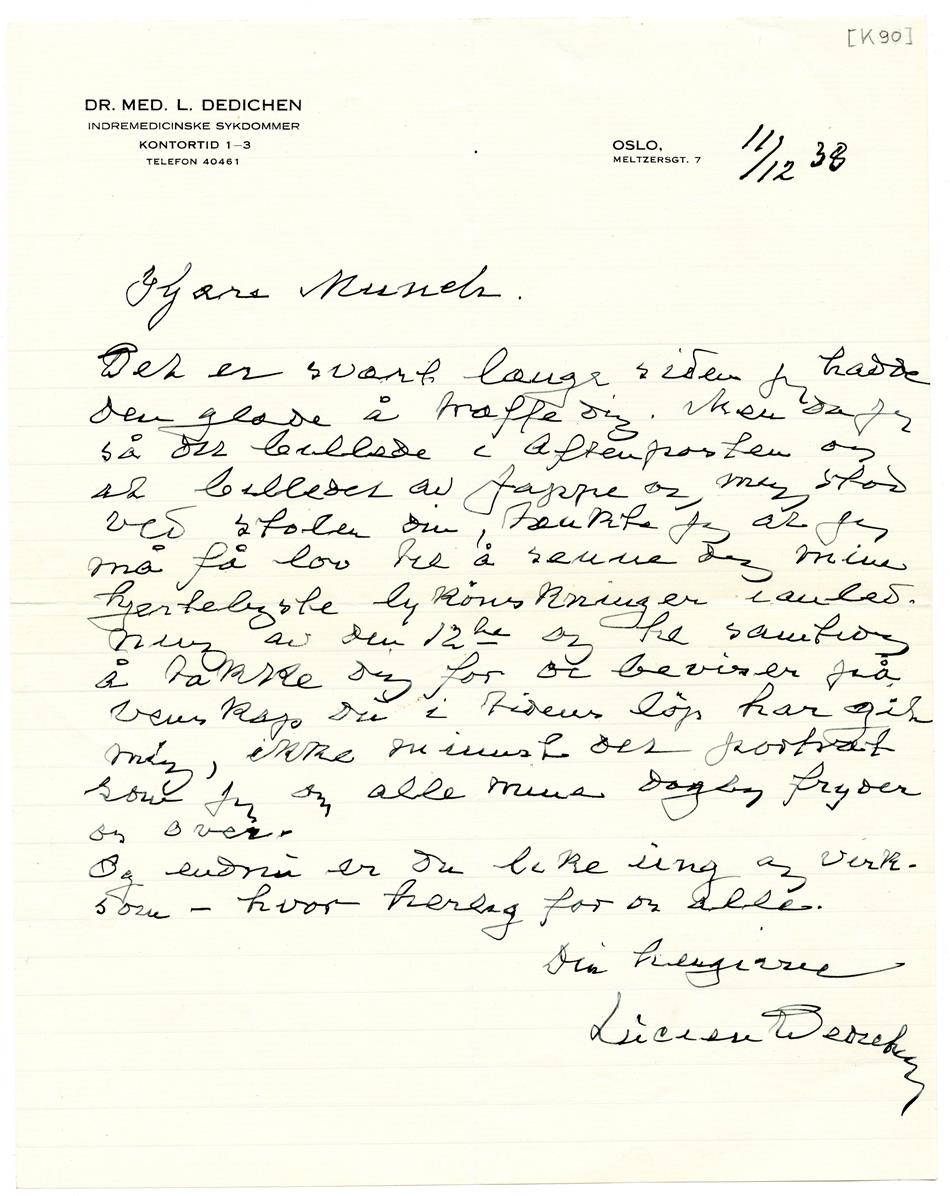 [K90]
DR. MED. L. DEDICHEN
INDREMEDICINSKE SYKDOMMER
KONTORTID 1–3
TELEFON 40461
OSLO,
MELTZERSGT. 7
11/12 38
Kjære Munch.
Det er svært længe siden jeg hadde
den glede å træffe dig. Men da jeg
så det billede i Aftenposten og
at billedet av Jappe og meg stod
ved stolen din, tænkte jeg at jeg
må få lov til å senne deg mine
hjerteligste lykönskninger i anled-
ning av den 12te og til samtidig
å takke dig for de beviser på
venskap du i tidens löp har git
mig, ikke minnst det portræt
som jeg og alle mine daglig fryder
os over.
Og endnu er du like ung og virk-
som – hvor herlig for os alle.
Din hengivne
Lucien Dedichen